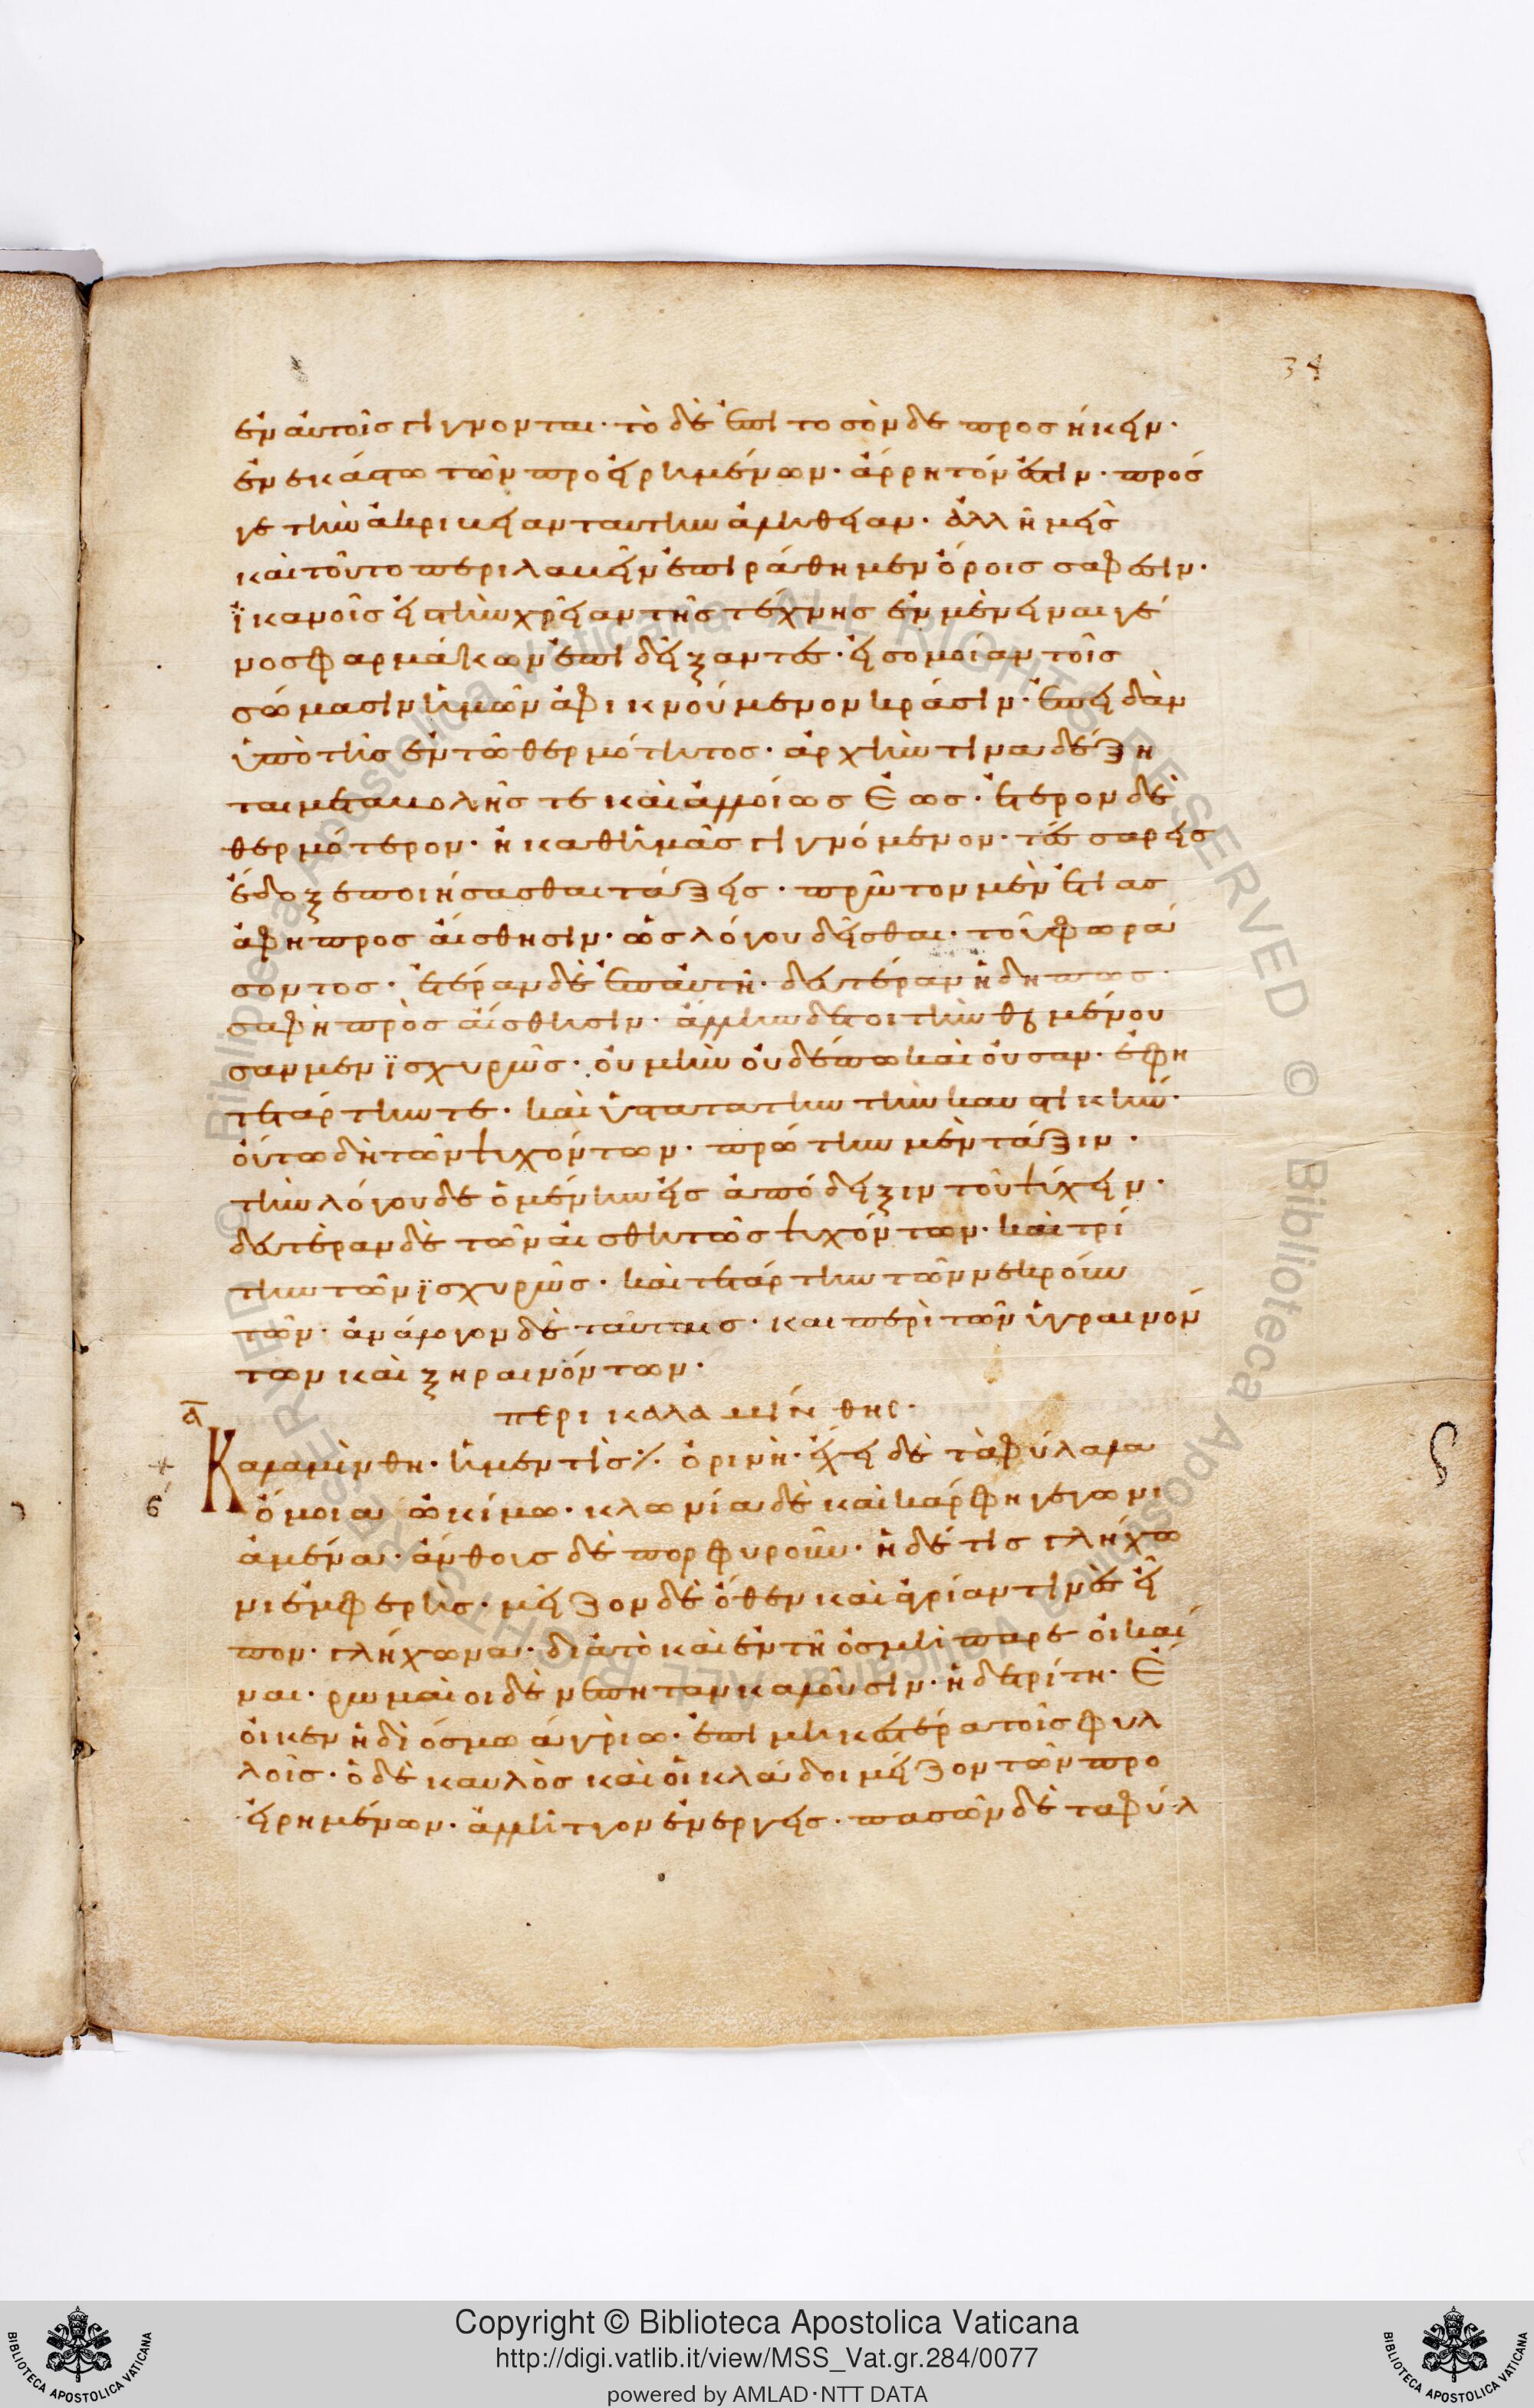 34
ἐν αὐτοῖς γίγνονται· τὸ δὲ ἐπὶ τοσόνδε προσήκειν·
ἐν ἑκάστω τῶν προειρημένων· ἄρρητόν ἐστιν· πρός
γε τὴν ἀκριβείαν ταύτην ἀλήθειαν· ἀλλ ἡμεῖς
καὶ τοῦτο περιλαβεῖν ἐπιράθημεν ὅροις σαφέσιν·
ϊκανοῖς εἰς τὴν χρείαν τῆς τέχνης ἐν μὲν εἶναι γέ
νος φαρμάκων ἐπιδείξαντες· εἰς ὁμοίαν τοῖς
σώμασιν ἡμῶν ἀφικνούμενον κράσιν· ἐπειδὰν
ὑπὸ τῆς ἐν τῶ θερμότητος· ἀρχήν τινα δέξη
ται μεταβολῆς τε καὶ ἀλλοιώσεως· ἕτερον δὲ
θερμότερον· ἢ καθ ἡμᾶς γιγνόμενον· τέσσαρεις
ἔδοξε ποιήσασθαι τάξεις· πρῶτον μὲν ἔτι ασ
αφῆ προς αἴσθησιν· ὡς λόγου δεῖσθαι· τοῦ φωρά
σοντος· ἑτέραν δὲ ἐπ αὐτῆ· δευτέραν ἤδη πως·
σαφῆ πρὸς αἴσθησιν· ἄλλην δέ τοι τὴν θερμένου
σαν μεν ϊσχυρῶς· οὐ μὴν οὐδέπω καίουσαν· ἐφ η
τετάρτην τε· καὶ ὑστάτατην τὴν καυστικήν·
οὕτω δὴ τῶν ψυχόντων· πρώτην μὲν τάξιν·
τὴν λόγου δεομένην εἰς ἀπόδειξιν τοῦ ψύχειν·
δευτέραν δὲ τῶν αἰσθητῶς ψυχόντων· καὶ τρί
την τῶν ϊσχυρῶς· καὶ τετάρτην τῶν νεκρούν
των· ἀνάλογον δὲ ταύταις· και περὶ τῶν ὑγραινόν
των καὶ ξηραινόντων·
περι καλαμίνθης·
α
Καλαμίνθη· ἡ μεν τίς· ὀρινὴ· ἔχει δὲ τὰ φύλλα
ὅμοια ὠκίμω· κλωνία δὲ καὶ κάρφη γεγωνι
ἀμένα· ἄνθοις δὲ πορφυροῦν· ἡ δέ τις γλήχω
νι ἐμφερὴς· μείζον δὲ ὅθεν καὶ ἀγρίαν τινὲς εἶ
πον· γλήχωνα· διὰ τὸ καὶ ἐν τῆ ὀσμὴ παρεοικαί
ναι· ρωμαὶοι δὲ νέπηταν καλοῦσιν· ἡ δε τρίτη· ἔ
οικεν ἡδιόσμω ἀγρίω· ἐπιμηκέστερα τοῖς φυλ
λοῖς· ὁ δὲ καυλὸς καὶ οἱ κλάδοι μείζον τῶν προ
ειρημένων· ἀλλ ἧττον ἐνεργεῖς· πασῶν δὲ τα φύλ
Copyright © Biblioteca Apostolica Vaticana
http://digi.vatlib.it/view/MSS_Vat.gr.284/0077
powered by AMLAD·NTT DATA
BIBLIOTECA APOSTOLICA VATICANA
BIBLIOTECA APOSTOLICA VATICANA